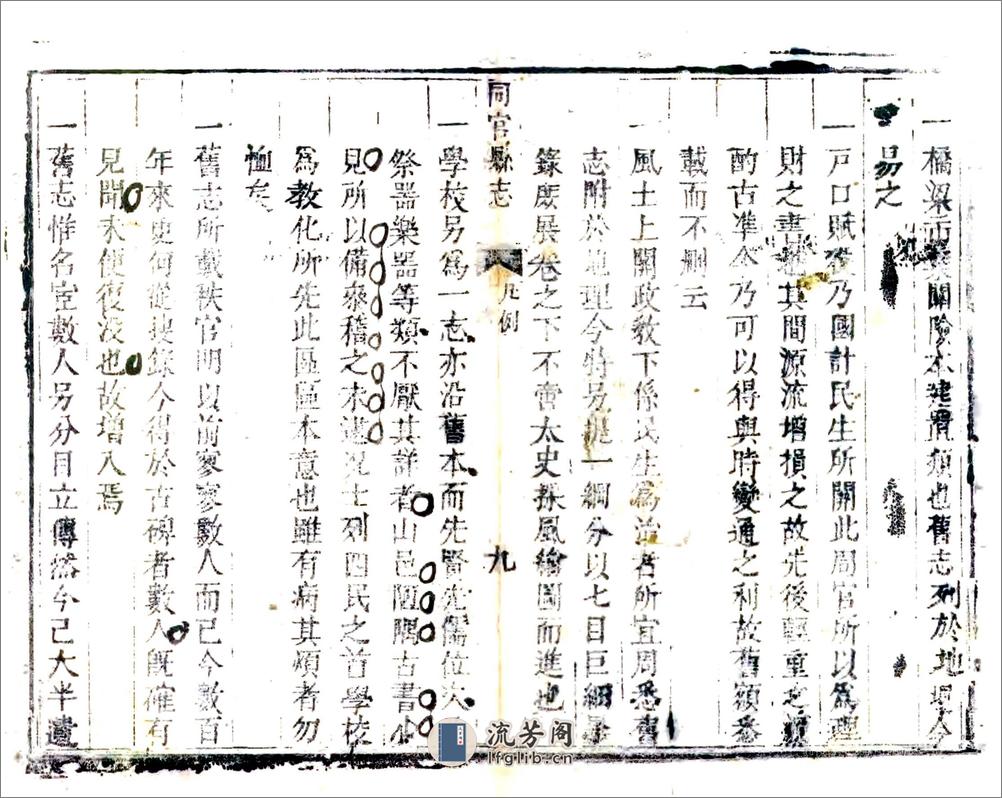 一橋梁市集關險本建置類也舊志列於地理今
易之
一戶口賦役乃國計民生所關此周官所以爲理
財之書也其間源流增損之故先後輕重之
酌古準今乃可以得與時變通之利故舊額悉
載而不刪云
一風土上關政教下係民生爲治者所宜周悉舊
志附於地理今特另提一綱分以七目巨細
錄庶展卷之下不啻太史採風繪圖而進也
同官縣志 凡例 九
一學校另爲一志亦沿舊本而先賢先儒位次
祭器樂器等類不厭其詳者山邑陋隅古書少
見所以備叅稽之未逮況士列四民之首學校
爲教化所先此區區本意也雖有病其煩者勿
恤矣
一舊志所載秩官明以前寥寥數人而已今數百
年來更何從搜錄今得於古碑者數人旣確有
見聞未便復沒也故增入焉
一舊志惟名宦數人另分目立傳然今已大半遺
流芳阁
lfglib.cn